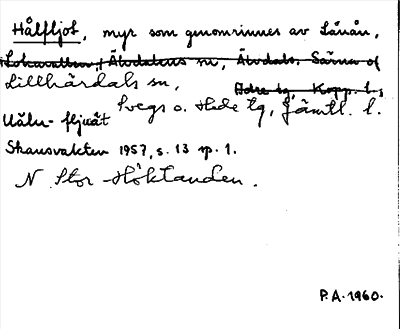 Hålfljot, myr som genomrinnes av Lånån,
Lokavallen, Älvdalens sn, Älvdals, Särna o
Lillhärdals sn, Idre tg, Kopp. l.,
Svegs o. Hede tg, Jämtl. l.
Hålu-fljuåt
Skansvakten 1957, s. 13 sp. 1.
N Stor-Höktanden.
P.A. 1960.